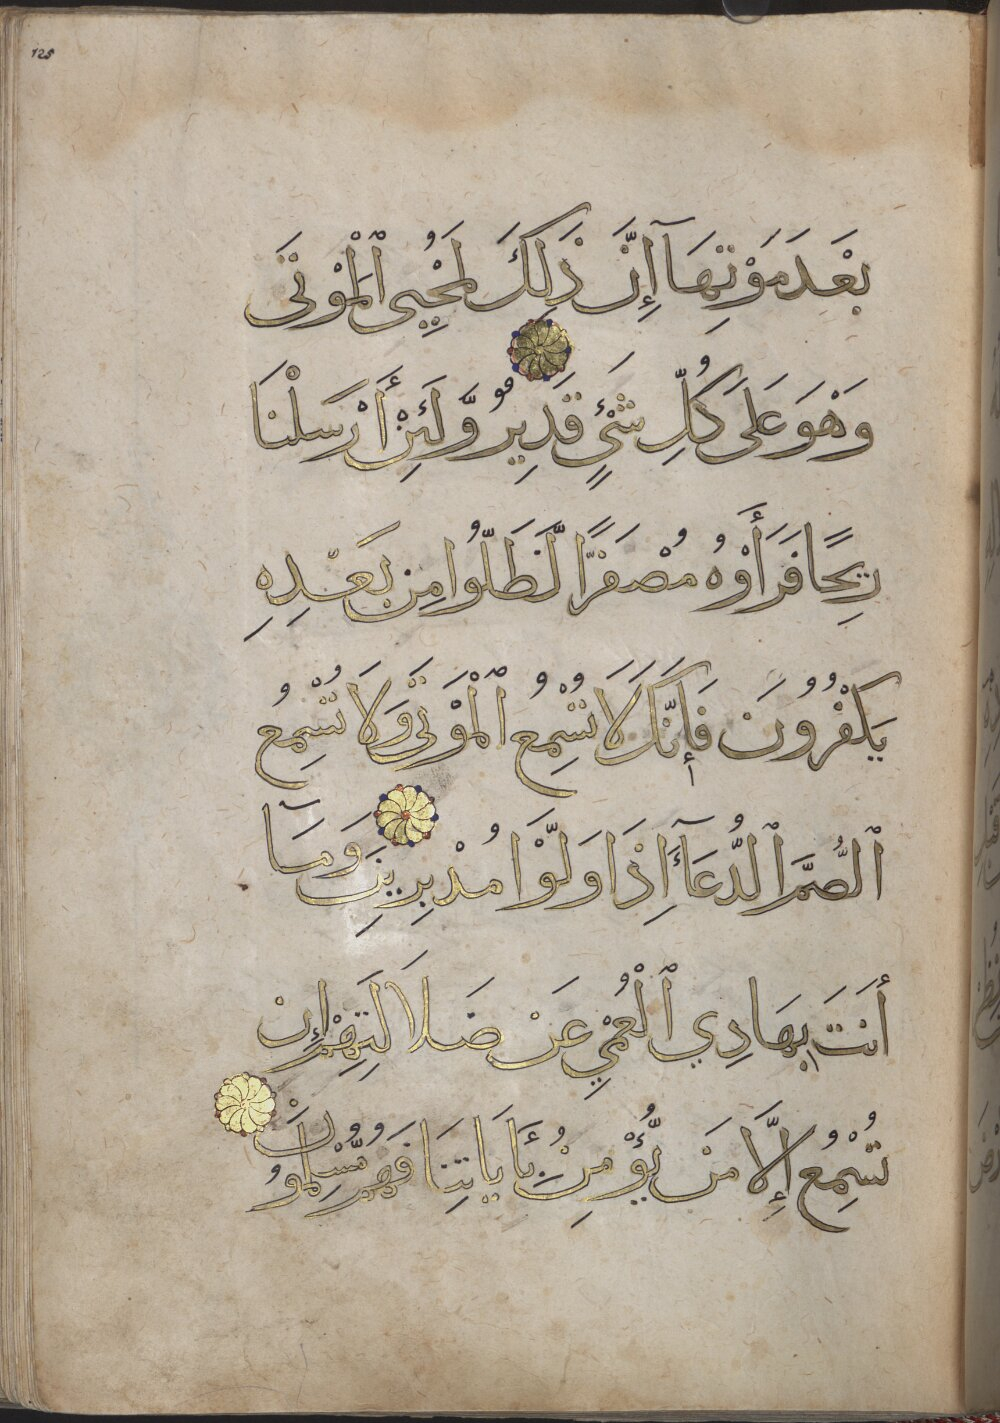 125
بَعْدَ مَوْتِهَآ إِنَّ ذَلِكَ لَمُحْيِي ٱلْمَوْتَى
وَهْوَ عَلَى كُلِّ شَيْءٍ قَدِيرٌ وَّلَئِنْ أَرْسَلْنَا
رِيحًا فَرَأَوْهُ مُصْفَرًّا لَّظَلُّوا مِن بَعْدِهِ
يَكْفُرُونَ فَإِنَّكَ لَا تُسْمِعُ ٱلْمَوْتَى وَلَا تُسْمِعُ
ٱلصُّمَّ ٱلدُّعَآءَ إِذَا وَلَّوْا مُدْبِرِينَ وَمَآ
أَنتَ بِهَادِي ٱلْعُمْيِ عَن ضَلَالَتِهِمْ إِن
تُسْمِعُ إِلَّا مَن يُّؤْمِنُ بِـَٔايَاتِنَا فَهُم مُّسْلِمُونَ